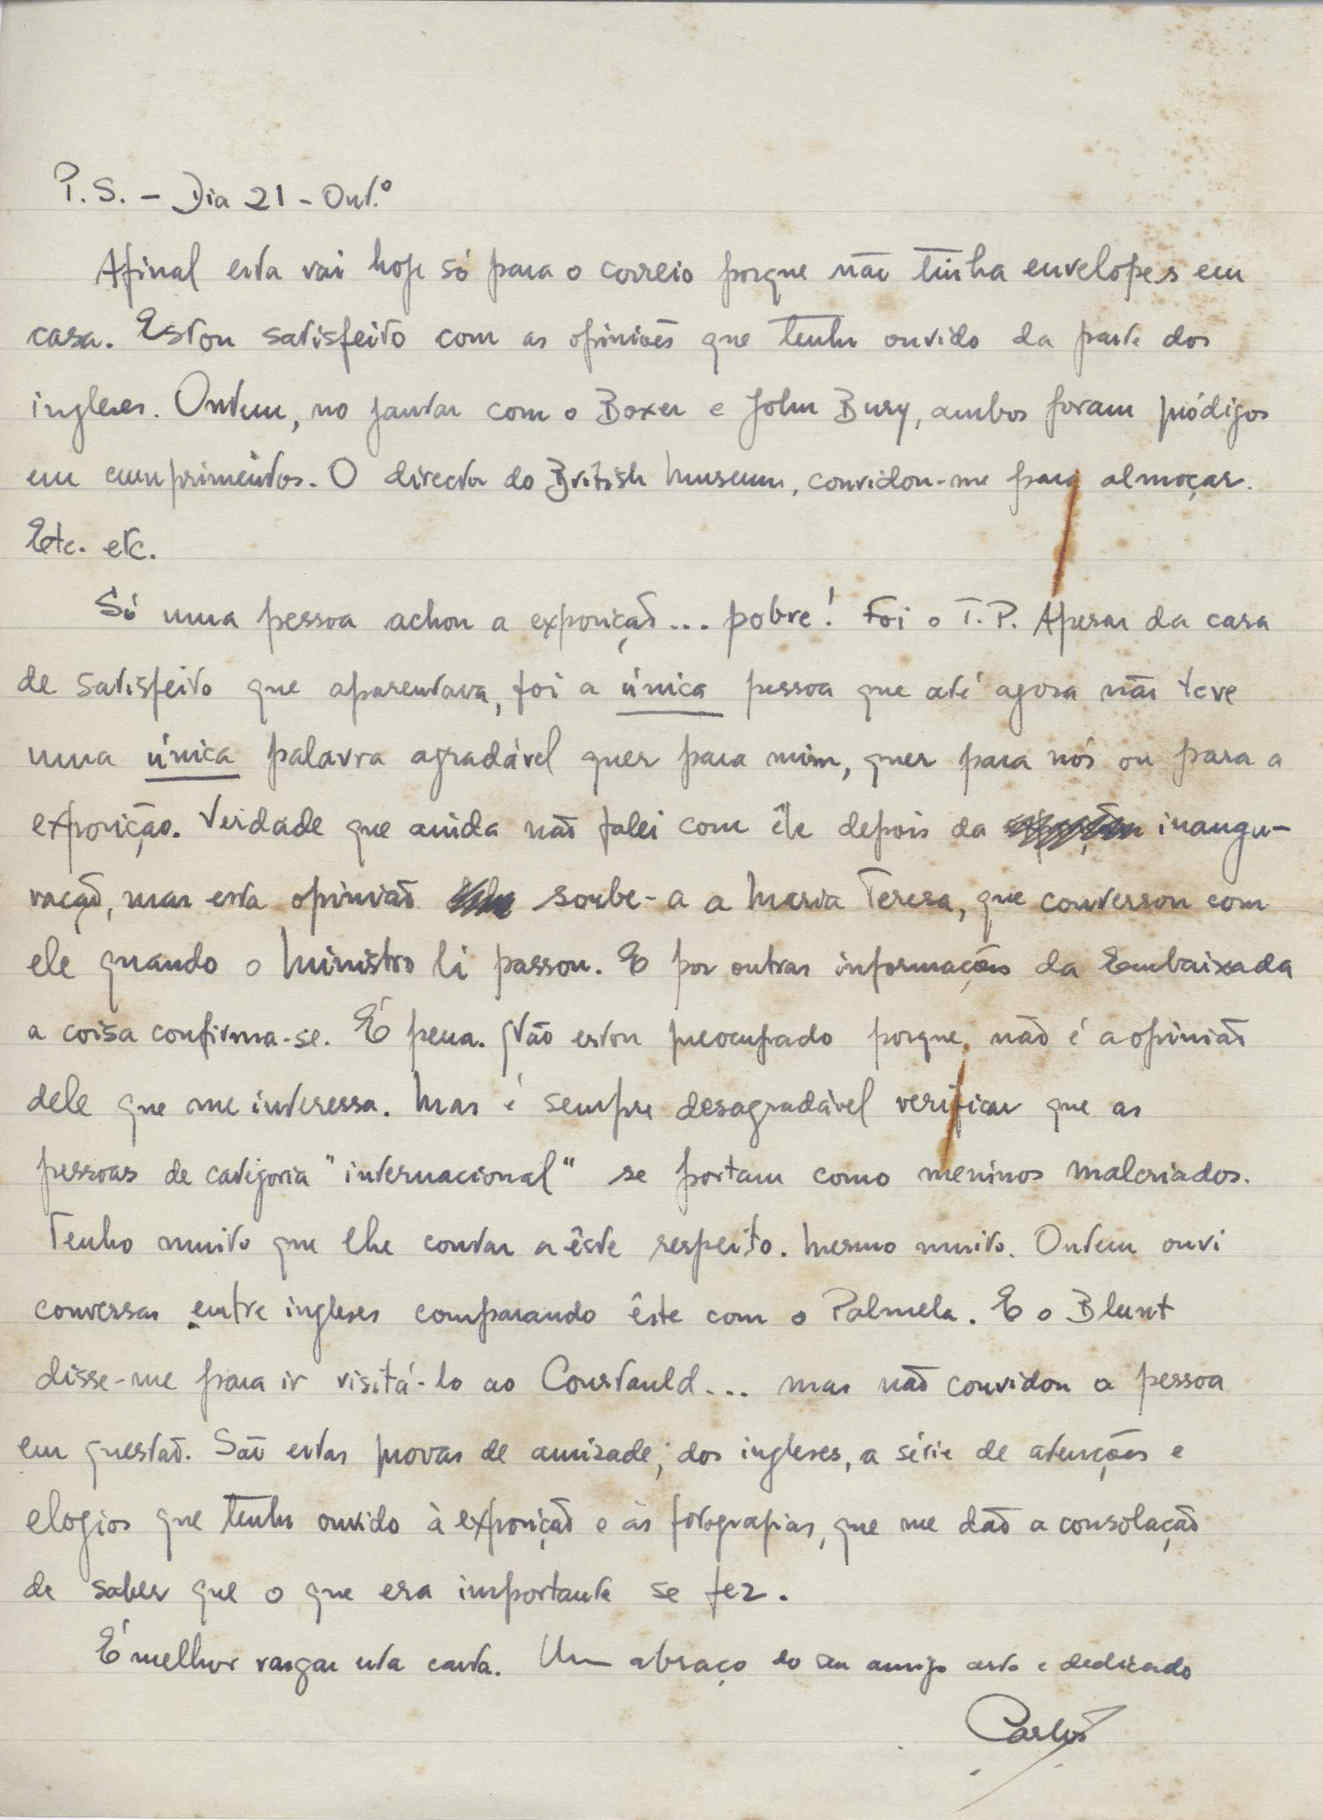 P.S. – Dia 21 – Out.º
Afinal esta vai hoje só para o correio porque não tinha envelopes em
casa. Estou satisfeito com as opiniões que tenho ouvido da parte dos
ingleses. Ontem, no jantar com o Boxer e John Bury, ambos foram pródigos
em cumprimentos. O director do British Museum, convidou-me para almoçar.
Etc. etc.
Só uma pessoa achou a exposição... pobre! Foi o T.P. Apesar da cara
de satisfeito que aparentava, foi a única pessoa que até agora não teve
uma única palavra agradável quer para mim, quer para nós ou para a
exposição. Verdade que ainda não falei com êle depois da inaugu-
ração, mas esta opinião soube-a a Maria Teresa, que conversou com
ele quando o Ministro li passou. E por outras informações da Embaixada
a coisa confirma-se. É pena. Não estou preocupado porque, não é a opinião
dele que me interessa. Mas é sempre desagradável verificar que as
pessoas de categoria "internacional" se portam como meninos malcriados.
Tenho muito que lhe contar a êste respeito. Mesmo muito. Ontem ouvi
conversas entre ingleses comparando êste com o Palmela. E o Blunt
disse-me para ir visitá-lo ao Courtauld... mas não convidou a pessoa
em questão. São estas provas de amizade, dos ingleses, a série de atenções e
elogios que tenho ouvido à exposição e às fotografias, que me dão a consolação
de saber que o que era importante se fez.
É melhor rasgar esta carta. Um abraço do seu amigo certo e dedicado
Carlos